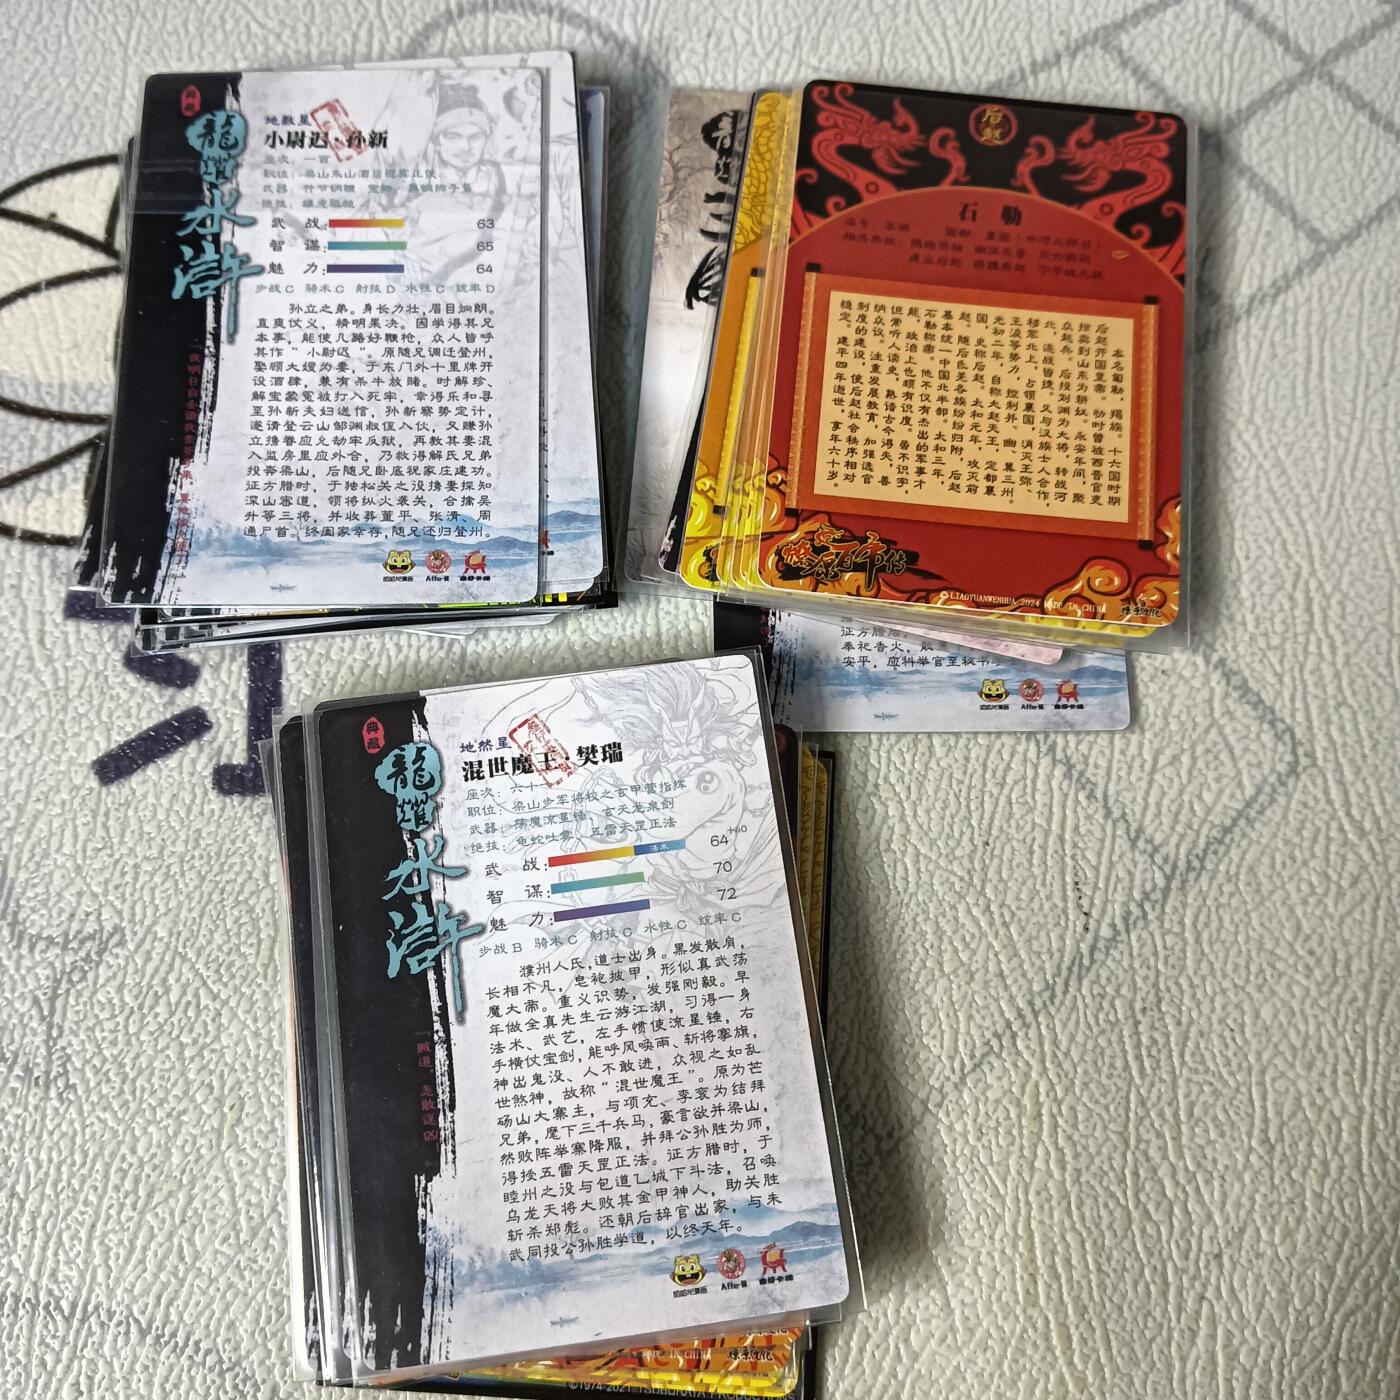 典藏
龍耀水滸
地数星
小尉迟·孙新
座次：一百
武 战： 63
智 谋： 65
魅 力： 64
步战C 骑术C 射技D 水性C 统率D
孙立之弟。身长力壮，眉目炯朗。
直爽仗义，精明果决。因学得其兄
本事，能使几路好鞭枪，众人皆呼
其作“小尉迟”。原随兄调迁登州，
娶顾大嫂为妻，于东门外十里牌开
设酒肆，兼有杀牛放赌。时解珍、
解宝蒙冤被打入死牢，幸得乐和寻
至孙新夫妇送信，孙新察势定计，
邀请登云山邹渊叔侄入伙，又赚孙
立携眷应允劫牢反狱，再教其妻混
入监房里应外合，乃救得解氏兄弟
投奔梁山，后随兄卧底祝家庄建功。
征方腊时，于独松关之役携妻探知
深山密道，领将纵火袭关，合擒吴
升等三将，并收葬董平、张清、周
通尸首。终阖家幸存，随兄还归登州。
哈哈龙漫画
Affe-H
后赵
石 勒
本名㔨勒，羯族。十六国时期
后赵开国皇帝。幼时曾被西晋官吏
掠卖到山东为耕奴。永安年间，聚
众起兵。后投刘渊为大将，转战河
北，连战皆捷。又与汉族士人合作，
移军北上，占领襄国，消灭王弥、
王浚等势力，控制并、幽、冀三州。
光初二年，自称大赵天王，定都襄
国，史称后赵。太和元年，攻灭前
赵。随后氐羌各族纷纷归附，后赵
基本统一中国北半部。太和三年，
石勒称帝。他不仅有杰出的军事才
能，政治上也颇有识度。虽不识字，
但常听人读史，熟谙古今得失，善
纳众议。注重发展教育，加强选官
制度的建设，使后赵社会秩序相对
稳定。建平四年逝世，享年六十岁。
燎原百帝传
© LIAOYUANWENHUA 2024 MADE IN CHINA
燎原文化
证方腊后，
奉祀香火，散
安平，应科举官至秘书
典藏
龍耀水滸
地然星
混世魔王·樊瑞
座次：六十一
职位：梁山步军将校之玄甲营指挥
武器：荡魔流星锤、玄天龙泉剑
绝技：龟蛇吐雾、五雷天罡正法
武 战： 法术 64+40
智 谋： 70
魅 力： 72
步战B 骑术C 射技C 水性C 统率C
濮州人氏，道士出身。黑发散肩，
长相不凡，皂袍披甲，形似真武荡
魔大帝。重义识势，发强刚毅。早
年做全真先生云游江湖，习得一身
法术、武艺，左手惯使流星锤，右
手横仗宝剑，能呼风唤雨、斩将搴旗，
神出鬼没、人不敢进，众视之如乱
世煞神，故称“混世魔王”。原为芒
砀山大寨主，与项充、李衮为结拜
兄弟，麾下三千兵马，豪言欲并梁山，
然败阵举寨降服，并拜公孙胜为师，
得授五雷天罡正法。征方腊时，于
睦州之役与包道乙城下斗法，召唤
乌龙天将大败其金甲神人，助关胜
斩杀郑彪。还朝后辞官出家，与朱
武同投公孙胜学道，以终天年。
哈哈龙漫画
Affe-H
燎原文化
©1974-2021 TSUBURAYA PRODUCTIONS